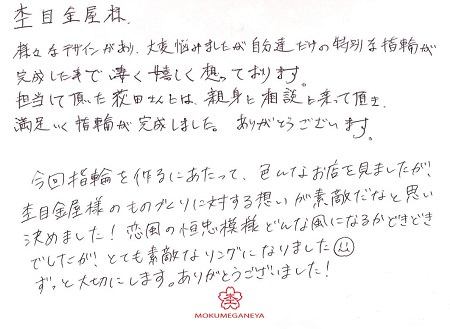 杢目金屋様.
様々なデザインがあり、大変悩みましたが自分達だけの特別な指輪が
完成したまで凄く嬉しく想っております。
担当して頂いた萩田さんには、親身に相談に乗って頂き、
満足いく指輪が完成しました。ありがとうございます。
今回指輪を作るにあたって、色んなお店を見ましたが、
杢目金屋様のものづくりに対する想いが素敵だなと思い
決めました！恋風の恒忠模様どんな風になるかどきどき
でしたが、とても素敵なリングになりました
ずっと大切にします。ありがとうございました！
MOKUMEGANEYA